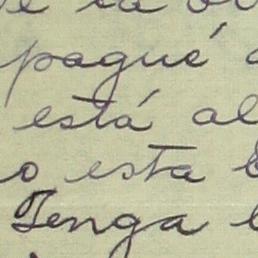 pagué
está al
o esta
Tenga